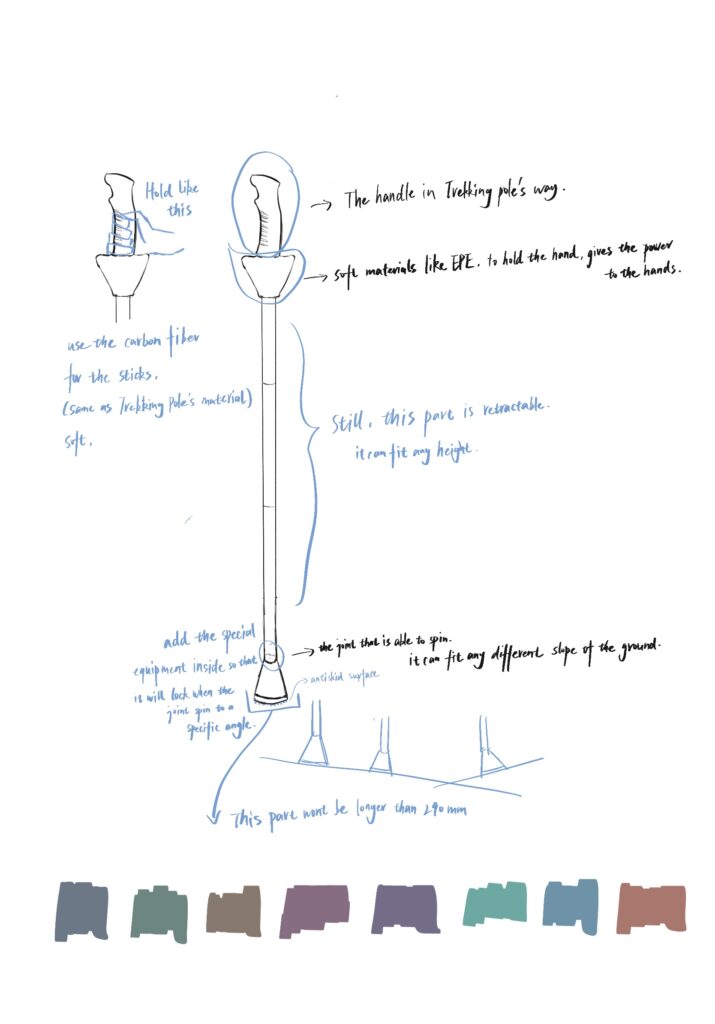 Hold like
this
The handle in Trekking pole's way.
soft materials like EPE. to hold the hand, gives the power
to the hands.
use the carbon fiber
for the sticks.
(same as Trekking Pole's material)
soft.
Still, this part is retractable.
it can fit any height.
add the special
equipment inside so that
it will lock when the
joint spin to a
specific angle.
the joint that is able to spin.
it can fit any different slope of the ground.
antiskid surface
This part wont be longer than 290 mm